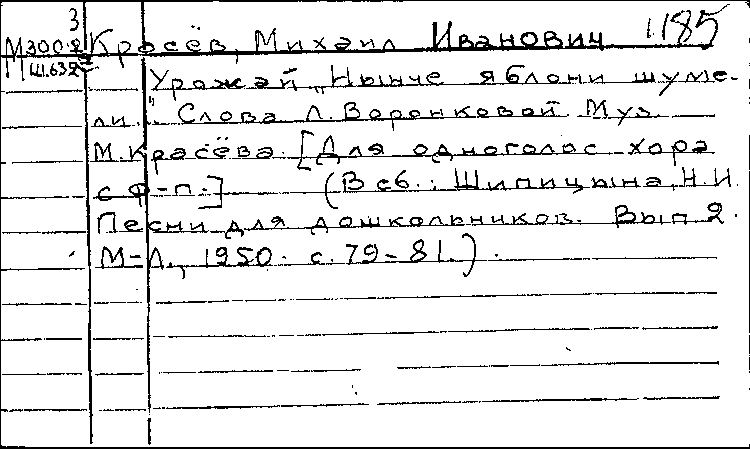 3
М300.2 Красёв, Михаил Иванович 1185
Ш.632
Урожай „Нынче яблони шуме-
ли." Слова Л. Воронковой. Муз.
М. Красёва. [Для одноголос. хора
с ф-п.] (В сб.: Шипицына, Н.И.
Песни для дошкольников. Вып 2.
М-Л., 1950. с. 79-81.).